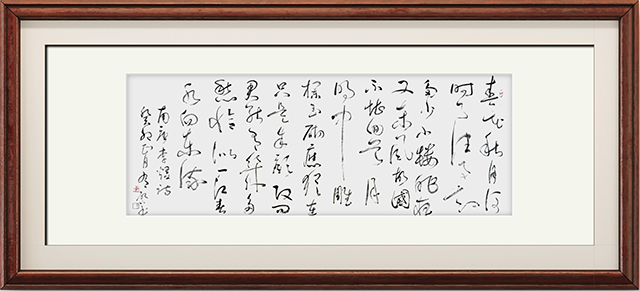 春花秋月何
时了往事知
多少小楼昨夜
又东风故國
不堪回首月
明中雕
栏玉砌应犹在
只是朱颜改问
君能有几多
愁恰似一江春
水向东流
南唐李煜
癸卯